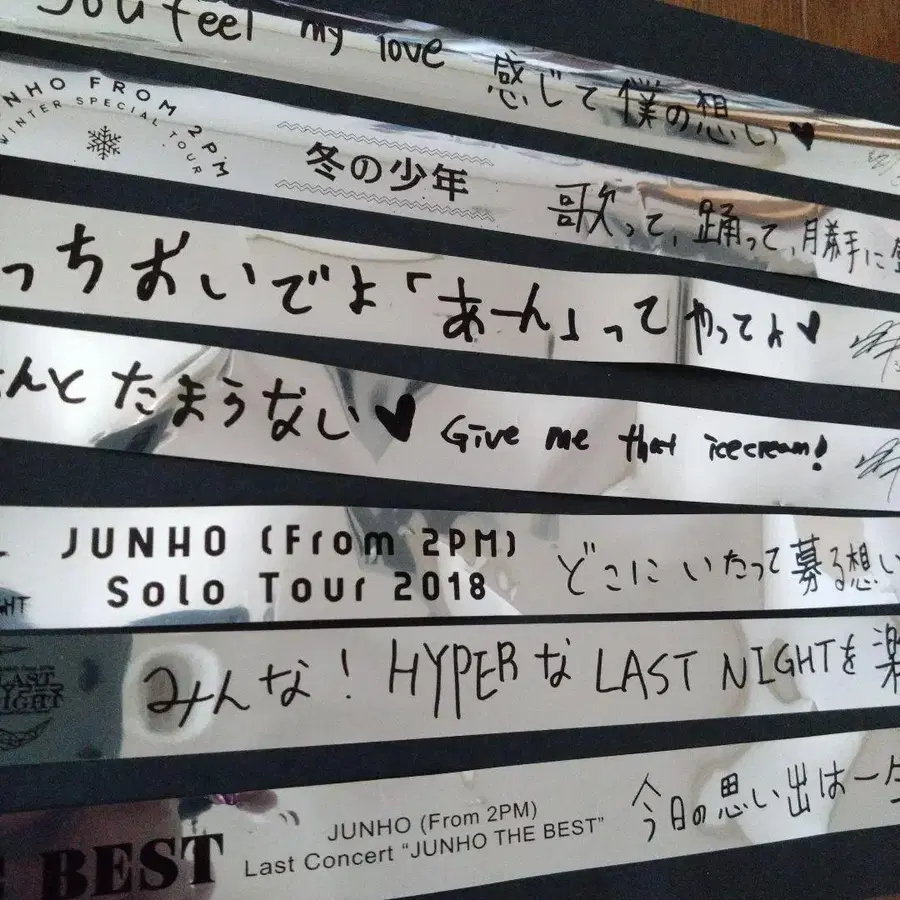 you feel my love 感じて僕の想い♥
JUNHO FROM 2PM
WINTER SPECIAL TOUR
冬の少年
歌って、踊って、勝手に
っちおいでよ「あーん」ってやってよ♥
んとたまらない♥ Give me that icecream!
JUNHO (From 2PM)
Solo Tour 2018
どこにいたって募る想い
LAST
HYPER
NIGHT
みんな！HYPERなLAST NIGHTを楽
BEST
JUNHO (From 2PM)
Last Concert “JUNHO THE BEST”
今日の思い出は一生